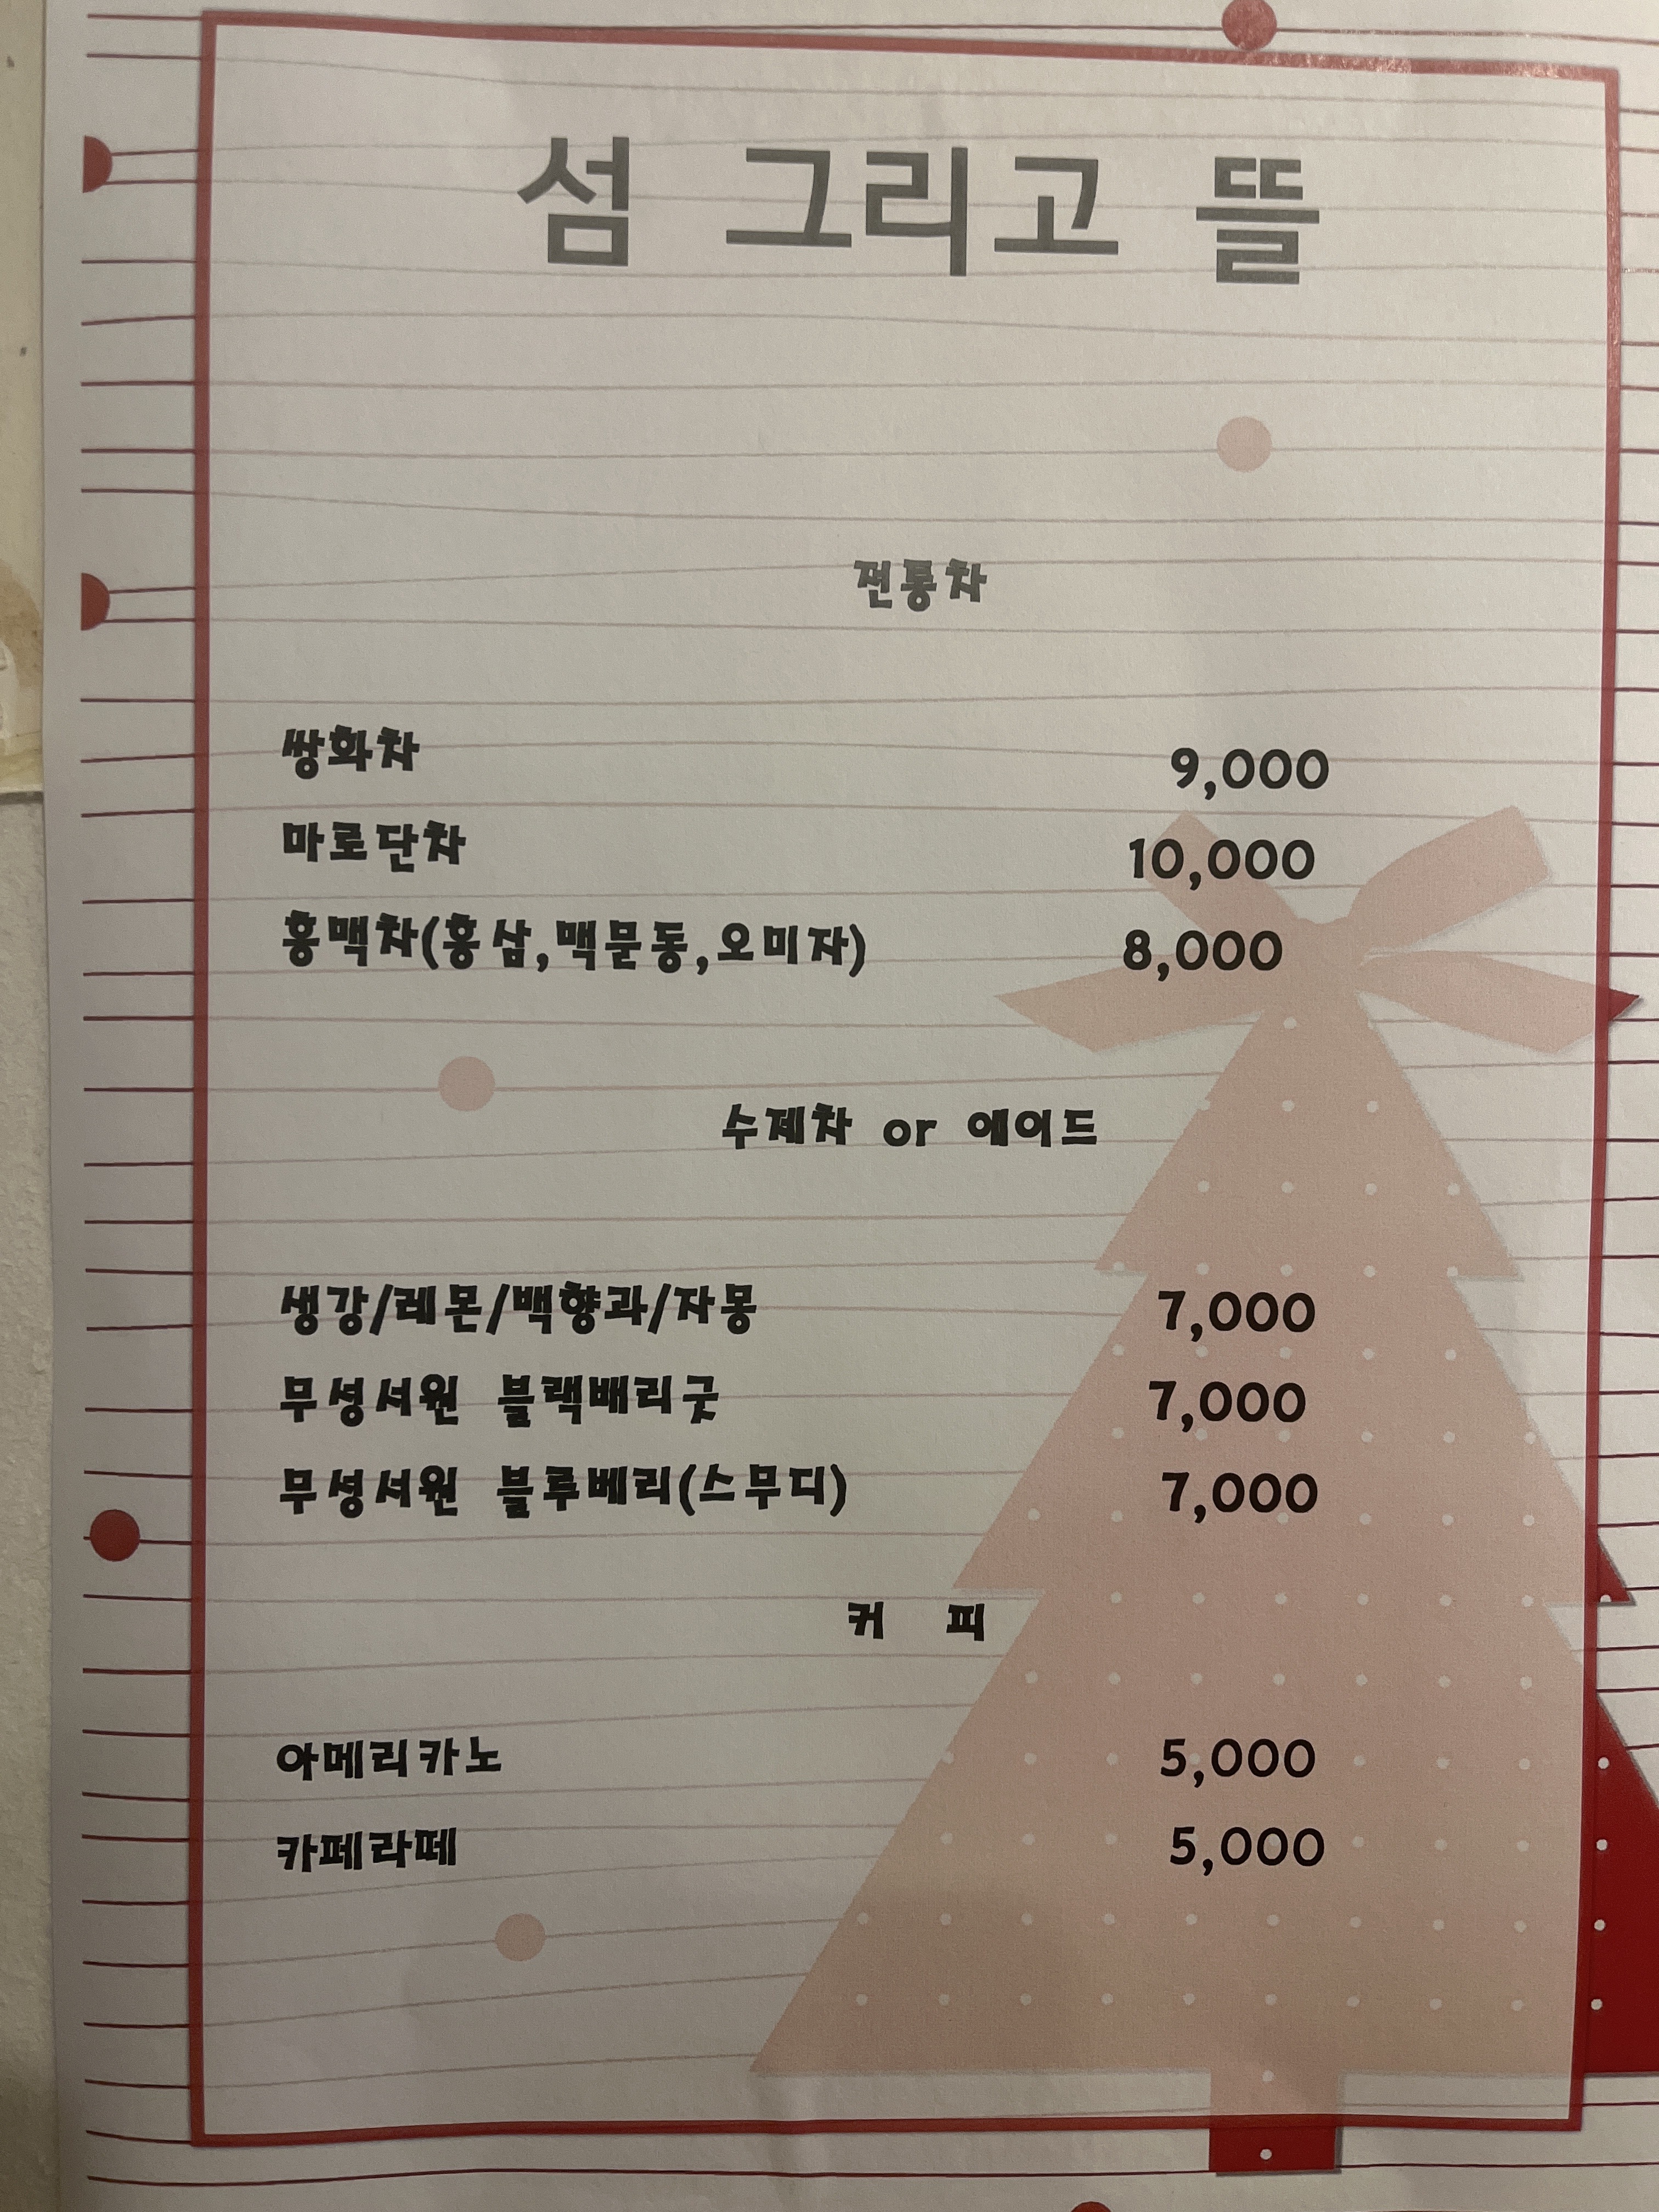 섬 그리고 뜰
전통차
쌍화차 9,000
마로단차 10,000
홍맥차(홍삼,맥문동,오미자) 8,000
수제차 or 에이드
생강/레몬/백향과/자몽 7,000
무성서원 블랙배리굿 7,000
무성서원 블루베리(스무디) 7,000
커 피
아메리카노 5,000
카페라떼 5,000